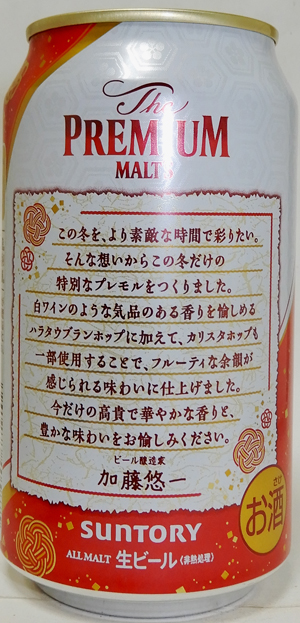 The
PREMIUM
MALT'S
この冬を、より素敵な時間で彩りたい。
そんな想いからこの冬だけの
特別なプレモルをつくりました。
白ワインのような気品のある香りを愉しめる
ハラタウブランホップに加えて、カリスタホップも
一部使用することで、フルーティな余韻が
感じられる味わいに仕上げました。
今だけの高貴で華やかな香りと、
豊かな味わいをお愉しみください。
ビール醸造家
加藤悠一
さけ
お酒
SUNTORY
ALL MALT 生ビール (非熱処理)